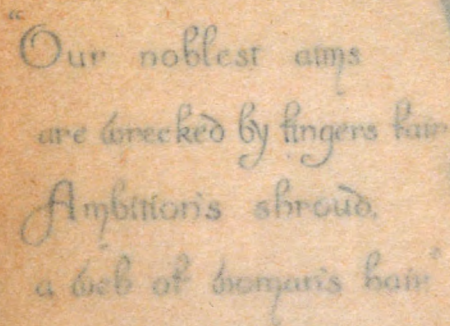 "Our noblest aims
are wrecked by fingers fair
Ambition's shroud,
a web of woman's hair"